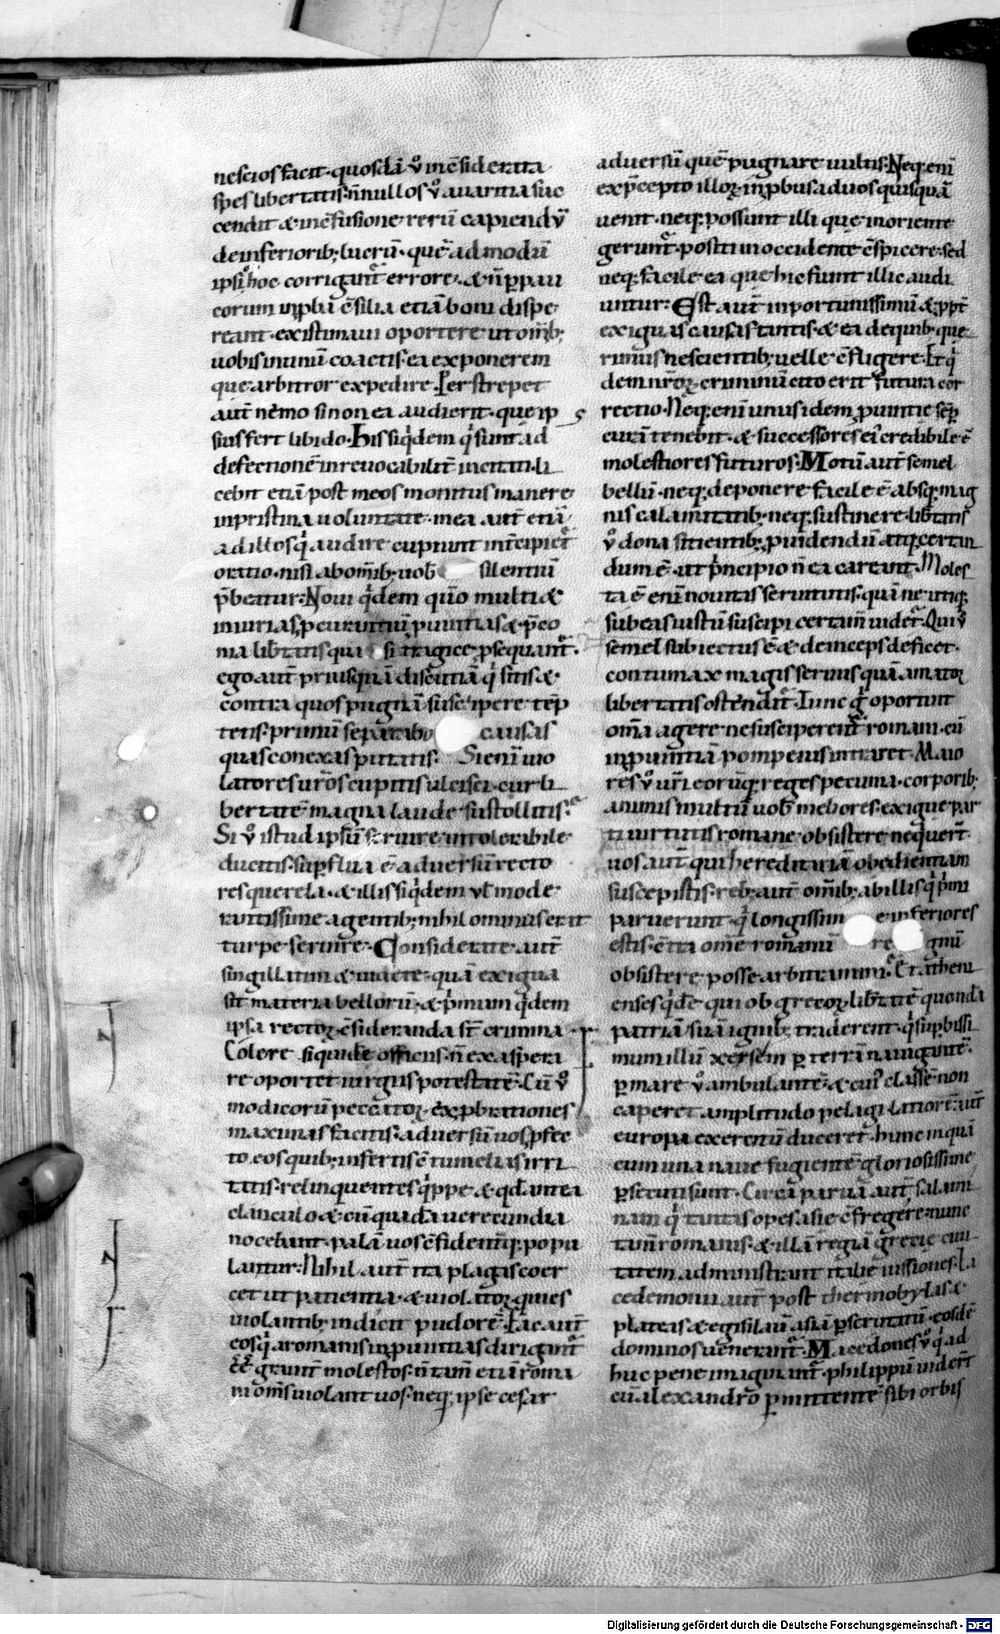 nescios facit · quosdā v̊ incōsiderata
spes libertatis · n̄nullos v̊ auaritia suc
cendit & incōfusione rerū capiendū
de inferiorib; lucrū · quē ad modū
ipsi hoc corrigant᷑ errore · & n̄ ꝓp paui
corum inꝓbū cōsilia etiā boni dispe
reant · existimaui oportere ut om̄ib;
uobis in unū coactis · ea exponerem
que arbitror expedire · Perstrepet
aut̄ nemo si non ea audierit · que ip
sius fert libido · His siq̇dem q̇ sunt ad
defectionē inreuocabilit̄ incitati · li
cebit etiā post meos monitus manere
in pristina uoluntate · mea aut̄ etiā
ad illos q̇ audire cupiunt int̄cipiet᷑
oratio · nisi ab om̄ib; uob̄ silentiū
p̄beatur · Noui q̇dem qūo multi &
iniurias ꝓcuratiuū ꝓuintias & p̄co
nia lib̄tatis quasi tragice ꝓsequant᷑ ·
ego aut̄ priusquā discutiā q̇ sitis &
contra quos pugnā suscipere tēp
tetis · primū separabo causas
quas conexas putatis · Si enī uio
latores ur̄os cupitis ulcisci · cur li
bertatē magna laude sustollitis ·
Si v̊ istud ipsū seruire intolerabile
ducitis · suꝑflua ē aduersū recto
res querela · & illis siq̇dem ul̄ mode
ratissime agentib; nihilominus erit
turpe seruire · Considerate aut̄
singillatim & uidete · quā exigua
sit materia bellorū · & p̄mum q̇dem
ipsa rectoꝝ cōsideranda st̄ crimina ·
Colere siquidē officiis · n̄ exaspera
re oportet iurgiis potestatē · Cū v̊
modicorū peccatoꝝ exꝓbrationes
maximas facitis · aduersū uos ꝓfec
to eos quib; infertis cōtumelias irri
tatis · relinquentes q̇ppe & qd̄ antea
clanculo & cū quadā uerecundia
nocebant · palā uos cōfidentiꝰ popu
lantur · Nihil aut̄ ita plagas coer
cet ut patientia · & uiolatoꝝ quies
uiolantib; indicit pudorē · Fac aut̄
eos q̇ a romanis in ꝓuintias dirigunt᷑
ēē grauit̄ molestos · n̄ tam̄ etiā roma
ni om̄s uiolant uos · neq; ipse cesar
aduersū quē pugnare uultis · Neq; enī
ex p̄cepto illoꝝ inꝓbus ad uos quisquā
uenit · neq; possunt illi que in oriente
gerunt᷑ · positi in occidente cōspicere · sed
neq; facile ea que hic fiunt illic audi
untur · Est aut̄ inportunissimū & ꝓpt̄
exiguas causas tantis · & ea de quib; que
rimus nescientib; uelle cōfligere · Et q̇
dem nr̄oꝝ criminū cito erit futura cor
rectio · Neq; enī unus idem ꝓuintie sēp
curā tenebit · & successores ei᷒ credibile ē
molestiores futuros · Motū aut̄ semel
bellū · neq; deponere facile ē absq; mag
nis calamitatib; neq; sustinere · lib̄tatis
v̊ dona sitientib; ꝓuidendū atq; certan
dum ē · ut p̄ncipio n̄ ea careant · Moles
ta ē enī nouitas seruitutis · quā ne utiq;
subeas iustū suscipi certam̄ uidet᷑ · Qui v̊
semel subiectus ē & deinceps deficet ·
contumax magis seruus quā amator
libertatis ostendit᷑ · Tunc ḡ oportuit
om̄ia agere ne susciperent᷑ romani · cū
in ꝓuintiā pompeius intraret · Maio
res v̊ uri eorūq; reges pecunia · corporib;
animis multū uob̄ meliores · exigue par
ti uirtutis romane obsistere nequert̄ ·
uos aut̄ qui hereditariā obedientiam
suscepistis · reb; aut̄ om̄ib; ab illis q̇ p̄mi
paruerunt · q̇ longissime inferiores
estis · cōtra om̄e romanū regnū
obsistere posse arbitramini · Et atheni
enses q̇dē · qui ob grecoꝝ lib̄tatē quondā
patriā suā ignib; traderent · q̇ suꝑbissi
mum illū xersem ꝑ terrā nauigantē ·
ꝑ mare v̊ ambulantē · & cui᷒ classē non
caperet amplitudo pelagi · latiorē aut̄
europa exercitū duceret · hunc inquā
cum una naue fugientē gloriosissime
ꝑsecuti sunt · Circa paruā aut̄ salami
nam q̇ tantas opes asie cōfregere · nunc
tam̄ romanis · & illā regiā grecie ciui
tatem administrant italie iussiones · La
cedemonii aut̄ post thermobylas &
plateas & egisilaū asiā ꝑscrutatū · eosdē
dominos uenerant᷑ · Macedones v̊ q̇ ad
huc pene imaginant᷑ · philippū uident̄
cū alexandro ꝓmittente sibi orbis
Digitalisierung gefördert durch die Deutsche Forschungsgemeinschaft - DFG